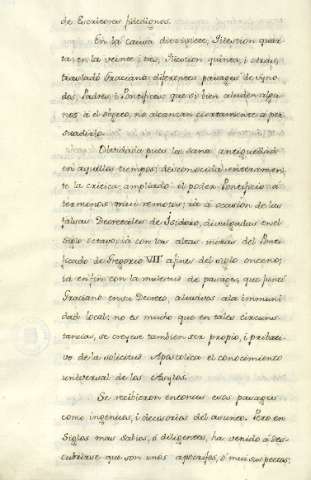 de Escritores fidedignos.
En la causa diecisiete, Question quarta,
en la veinte y tres, Question quinta, i otras,
trasladó Graciano, diferentes pasages de Synodos,
Padres, i Pontifices que si bien aluden algunos
à el Sagrado, no alcanzan ciertamente à persuadirlo.
Olvidada pues la sana antigüedad
en aquellos tiempos; desconocida enteramente
la critica; ampliado el poder Pontificio à
terminos mui remotos; yà à ocasion de las
falsas Decretales de Isidoro, divulgadas en el
Siglo octavo, yà con las altas miras del Pontificado
de Gregorio VII à fines del siglo onceno;
i à en fin con la multitud de pasages, que juntó
Graciano en su Decreto, alusivos à la immunidad
local; no es mucho que en tales circunstancias,
se creyese tambien ser propio, i privativo
de la solicitud Apostolica el conocimiento
universal de los Asylos.
Se recibieron entonces esos pasages
como ingenuos, i decisorios del asunto. Pero en
Siglos mas sabios, ò diligentes, ha venido à descubrirse
que son unos apocrifos, ò mui suspectos;